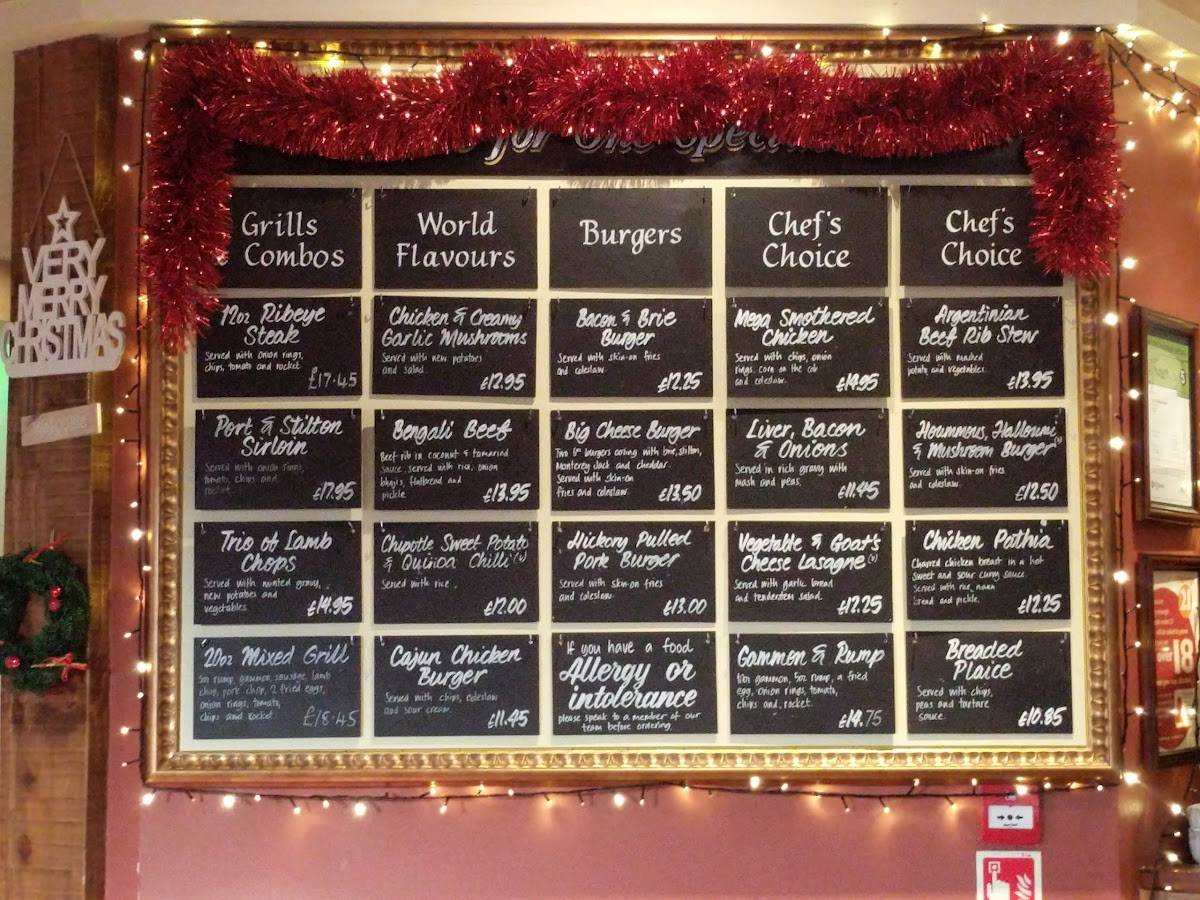 for One Speci
Grills
Combos
12oz Ribeye
Steak
Served with onion rings,
chips, tomato and rocket
£17.45
Port & Stilton
Sirloin
Served with onion rings,
tomato, chips and
rocket
£17.95
Trio of Lamb
Chops
Served with minted gravy,
new potatoes and
vegetables.
£14.95
20oz Mixed Grill
5oz rump, gammon, sausage, lamb
chop, pork chop, 2 fried eggs,
onion rings, tomato,
chips and rocket
£18.45
World
Flavours
Chicken & Creamy
Garlic Mushrooms
Served with new potatoes
and salad.
£12.95
Bengali Beef
Beef rib in coconut & tamarind
sauce, served with rice, onion
bhajis, flatbread and
pickle.
£13.95
Chipotle Sweet Potato
& Quinoa Chilli (v)
Served with rice.
£12.00
Cajun Chicken
Burger
Served with chips, coleslaw
and sour cream.
£11.45
Burgers
Bacon & Brie
Burger
Served with skin-on fries
and coleslaw.
£12.25
Big Cheese Burger
Two 6oz burgers oozing with brie, stilton,
Monterey Jack and cheddar.
Served with skin-on
fries and coleslaw.
£13.50
Hickory Pulled
Pork Burger
Served with skin-on fries
and coleslaw.
£13.00
If you have a food
Allergy or
intolerance
please speak to a member of our
team before ordering.
Chef's
Choice
Mega Smothered
Chicken
Served with chips, onion
rings, corn on the cob
and coleslaw.
£14.95
Liver, Bacon
& Onions
Served in rich gravy with
mash and peas.
£11.45
Vegetable & Goat's
Cheese Lasagne (v)
Served with garlic bread
and tenderstem salad.
£12.25
Gammon & Rump
10oz gammon, 5oz rump, a fried
egg, onion rings, tomato,
chips and rocket.
£14.75
Chef's
Choice
Argentinian
Beef Rib Stew
Served with mashed
potato and vegetables.
£13.95
Houmous, Halloumi
& Mushroom Burger (v)
Served with skin-on fries
and coleslaw.
£12.50
Chicken Pathia
Charred chicken breast in a hot
sweet and sour curry sauce
Served with rice, naan
bread and pickle.
£12.25
Breaded
Plaice
Served with chips,
peas and tartare
sauce.
£10.85
VERY
MERRY
CHRISTMAS
5
21
over 18